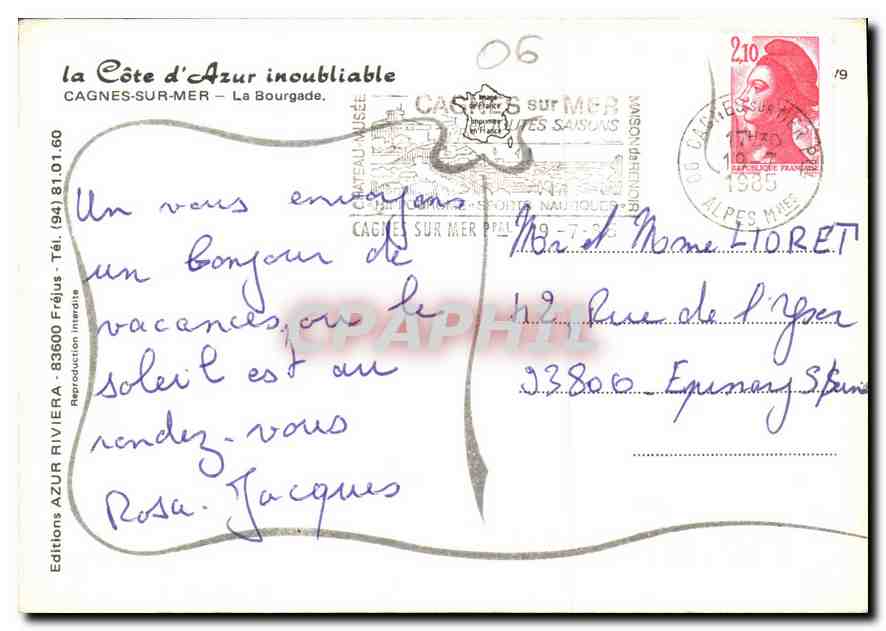 06
la Côte d'Azur inoubliable
CAGNES-SUR-MER – La Bourgade.
2,10
REPUBLIQUE FRANÇAISE
/9
CAGNES sur MER
TOUTES SAISONS
CHATEAU-MUSÉE
MAISON de RENOIR
SPORTS NAUTIQUES
CAGNES SUR MER PPAL 19-7-85
Image de France
imprimée en France
06 CAGNES SUR MER PPAL
17H30
19-7
1985
ALPES Mmes
Un vous envoyons
un bonjour de
vacances, ou le
soleil est au
rendez-vous
Rosa. Jacques
Mr et Mome LIORET
42, Rue de l'Yser
93800 – Epinay S/Seine
Editions AZUR RIVIERA - 83600 Fréjus - Tél. (94) 81.01.60
Reproduction interdite
CPAPHIL